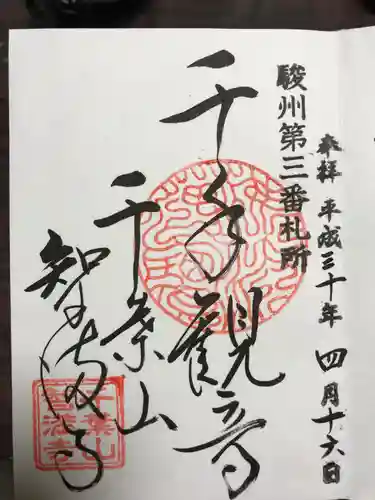 奉拝 平成三十年 四月十六日
駿州第三番札所
千手観音
千葉山
智満寺
千葉山智満寺